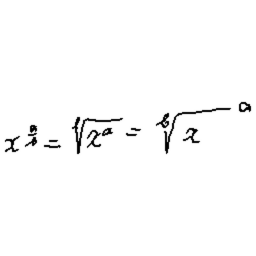 x^{\frac{a}{b}} = \sqrt[b]{x^a} = \sqrt[b]{x}^a